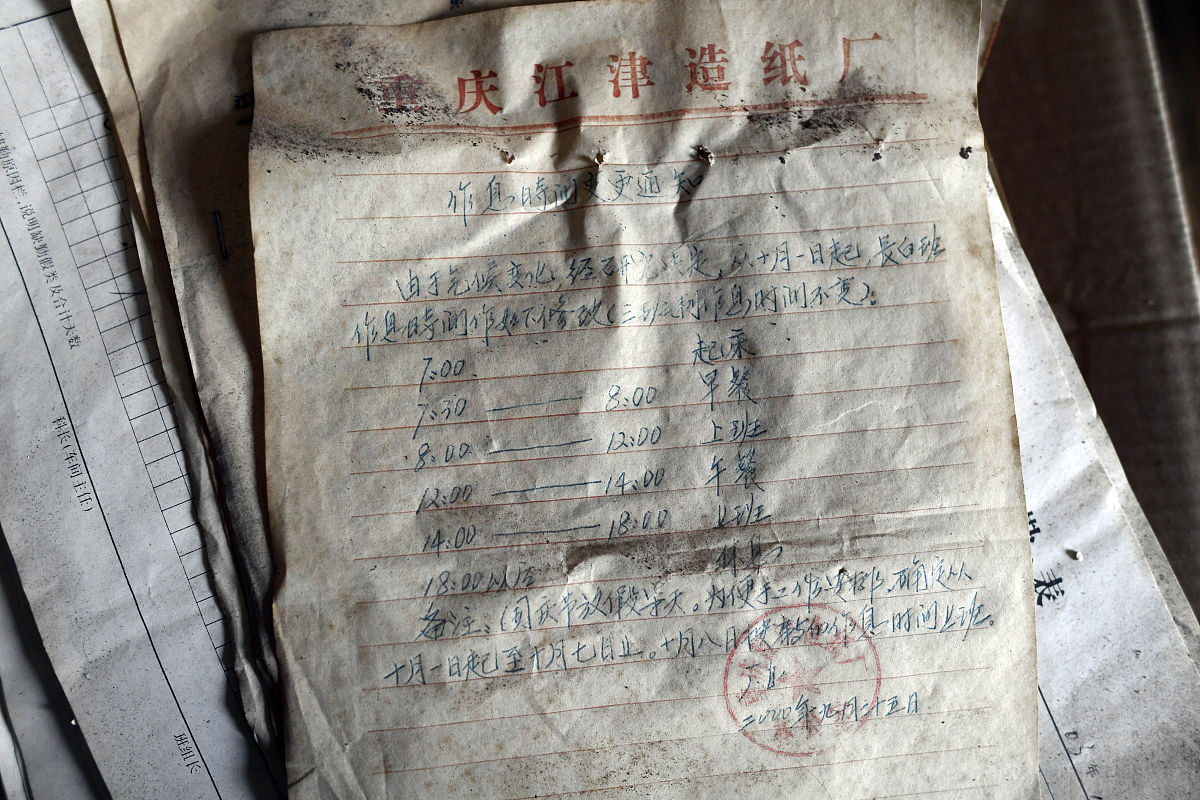 重庆江津造纸厂
作息時间变更通知
由于气候变化,经研究决定,从十月一日起,长白班
作息時间作如下修改(三班制作息时间不变)。
7:00 起床
7:30 —— 8:00 早餐
8:00 —— 12:00 上班
12:00 —— 14:00 午餐
14:00 —— 18:00 上班
18:00以后 休息
备注:(国庆节放假 天。为便于工作安排,确定从
十月一日起至十月七日止。十月八日按 作息时间上班。
厂办
二000年九月二十五日
缺勤原因栏,说明缺勤假类及合计天数
科长(车间主任)
班组长
表
03年